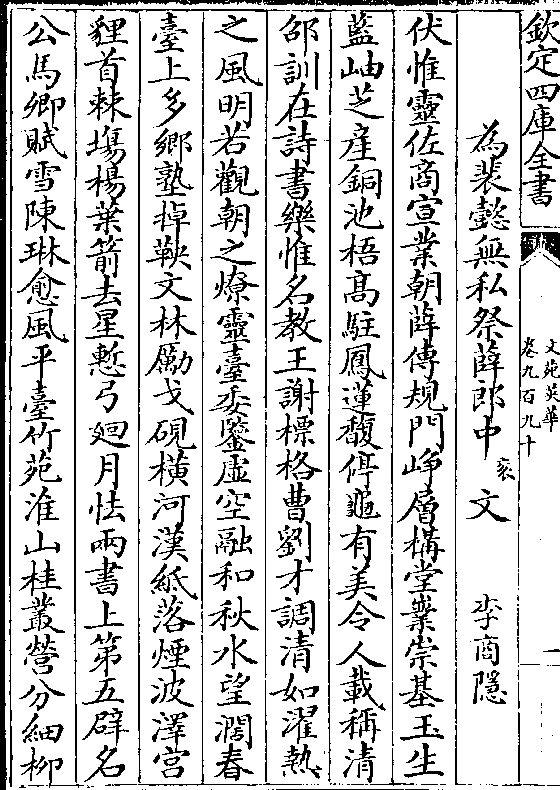 欽定四庫全書
文苑英華
卷九百九十
一
為裴懿無私祭薛郎中衮文 李商隱
伏惟靈佐商宣業朝薛傳規門崢層構堂業崇基玉生
藍岫芝產銅池梧高駐鳳蓮馥停龜有美令人載稱清
邵訓在詩書樂惟名教王謝標格曹劉才調清如濯熱
之風明若觀朝之燎靈臺委鑒虛空融和秋水望濶春
臺上多鄉塾掉鞅文林勵戈硯橫河漢紙落煙波澤宮
貍首棘塲楊葉箭去星慙弓廻月怯兩書上第五辟名
公馬卿賦雪陳琳愈風平臺竹苑淮山桂叢營分細柳